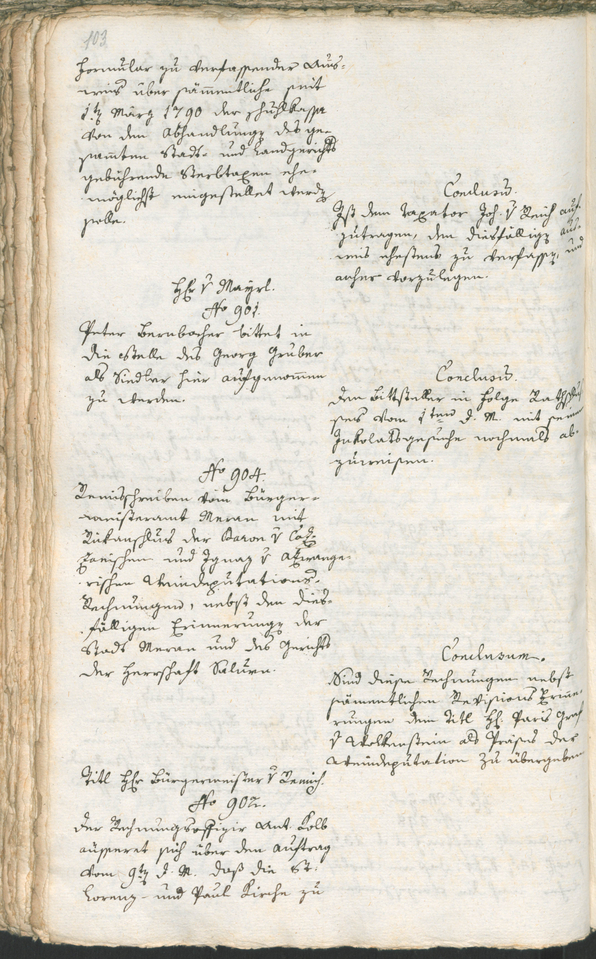 103
Formular zu verfassender Aus-
weis über sämmentliche seit
1tn März 1790 der Schuhlkassa
von den Abhandlungen des ge-
sammten Stadt- und Landgerichts
gebührende Sterbtaxen ehe-
möglichst eingestellet werden
solle.
Conclusum.
Ist dem Taxator Joh. v Reich auf-
zutragen, den diesfälligen Aus-
weis ehestens zu verfassen, und
anher vorzulegen.
Hhr v Mayrl.
No 901.
Peter Bernbacher bittet in
die Stelle des Georg Gruber
als Siedler hier aufgenommen
zu werden.
Conclusum.
Den Bittsteller in Folge Rathschlus
ses vom 1ten d. M. mit seinem
Inkolatsgesuche nochmals ab-
zuweisen.
No 904.
Remisschreiben vom Bürger-
meisteramt Meran mit
Rükanschlus der Baron v
und Ignaz v
rischen Weindeputations-
Rechnungen, nebst den dies-
fälligen Erinnerungen der
Stadt Meran und des Gerichts
der Herrschaft Salurn.
Conclusum.
Sind diese Rechnungen nebst
sämentlichen Revisions Erinne-
rungen dem Titl Hh. Paris Graf
v Wolkenstein als Präses der
Weindeputation zu übergeben
Titl Hhr Bürgermeister v Remich.
No 902.
Der Rechnungsoffizir Ant. Kolb
äusseret sich über den Auftrag
vom 9tn d. M. daß die St.
Lorenz- und Paul Kirche zu